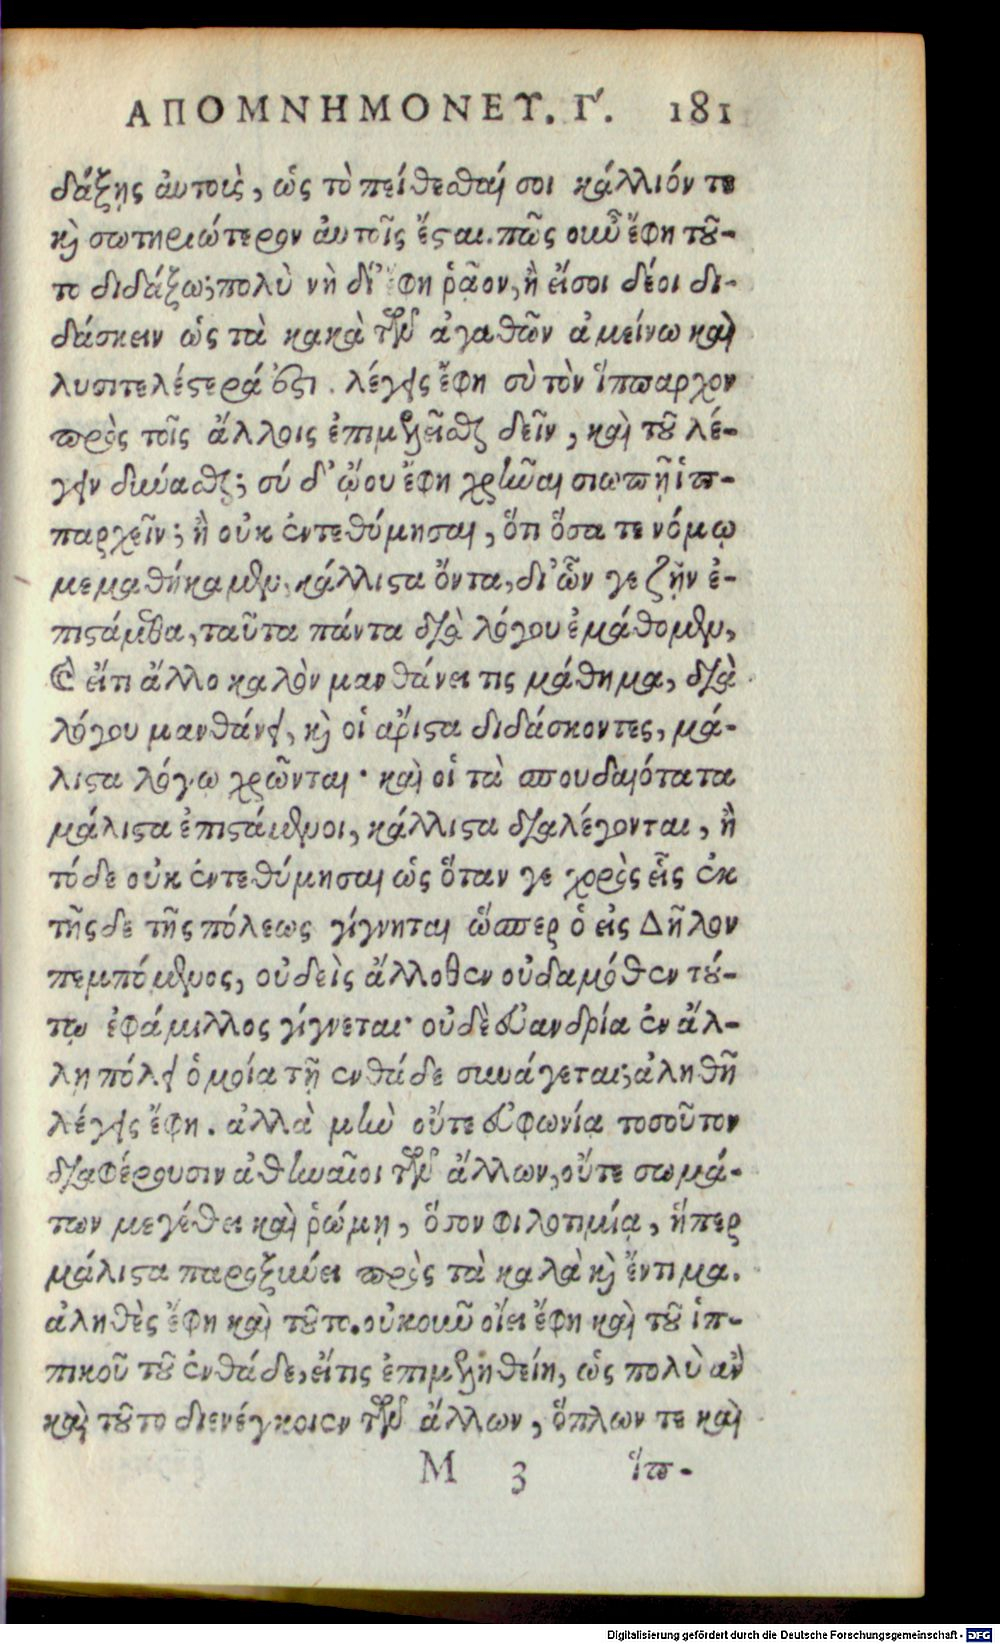 ΑΠΟΜΝΗΜΟΝΕΥ. Γ'. 181
δάξῃς ἀυτοὺς, ὡς τὸ πείθεσθαι σοι κάλλιόν τε
κὶ σωτηριώτερον ἀυτοῖς ἔσται. πῶς οὖν ἔφη τοῦ-
το διδάξω; πολὺ νὴ δί' ἔφη ῥᾷον, ἢ εἴσοι δέοι δι-
δάσκειν ὡς τὰ κακὰ τῶν ἀγαθῶν ἀμείνω καὶ
λυσιτελέστερά ἐστι. λέγεις ἔφη σὺ τὸν ἵππαρχον
πρὸς τοῖς ἄλλοις ἐπιμελεῖσθαι δεῖν, καὶ τοῦ λέ-
γειν δύνασθαι; σύ δ' ᾤου ἔφη χρῆναι σιωπῇ ἱπ-
παρχεῖν; ἢ οὐκ ἐντεθύμησαι, ὅτι ὅσα τε νόμῳ
μεμαθήκαμεν, κάλλιστα ὄντα, δι' ὧν γε ζῇν ἐ-
πιστάμεθα, ταῦτα πάντα διὰ λόγου ἐμάθομεν,
καὶ εἴτι ἄλλο καλὸν μανθάνει τις μάθημα, διὰ
λόγου μανθάνει, κὶ οἱ ἄριστα διδάσκοντες, μά-
λιστα λόγῳ χρῶνται· καὶ οἱ τὰ σπουδαιότατα
μάλιστα ἐπιστάμενοι, κάλλιστα διαλέγονται, ἢ
τόδε οὐκ ἐντεθύμησαι ὡς ὅταν γε χορὸς εἷς ἐκ
τῆσδε τῆς πόλεως γίγνηται ὥσπερ ὁ εἰς Δῆλον
πεμπόμενος, οὐδεὶς ἄλλοθεν οὐδαμόθεν τού-
τῳ ἐφάμιλλος γίγνεται· οὐδὲ εὐανδρία ἐν ἄλ-
λῃ πόλει ὁμοία τῇ ἐνθάδε συνάγεται; ἀληθῆ
λέγεις ἔφη. ἀλλὰ μὴν οὔτε εὐφωνίᾳ τοσοῦτον
διαφέρουσιν ἀθηναῖοι τῶν ἄλλων, οὔτε σωμά-
των μεγέθει καὶ ῥώμῃ, ὅσον φιλοτιμίᾳ, ἥπερ
μάλιστα παροξύνει πρὸς τὰ καλὰ κὶ ἔντιμα.
ἀληθὲς ἔφη καὶ τοῦτο. οὐκοῦν οἴει ἔφη καὶ τοῦ ἱπ-
πικοῦ τοῦ ἐνθάδε, εἴτις ἐπιμεληθείη, ὡς πολὺ ἂν
καὶ τοῦτο διενέγκοιεν τῶν ἄλλων, ὅπλων τε καὶ
M 3 ἵπ-
Digitalisierung gefördert durch die Deutsche Forschungsgemeinschaft - DFG